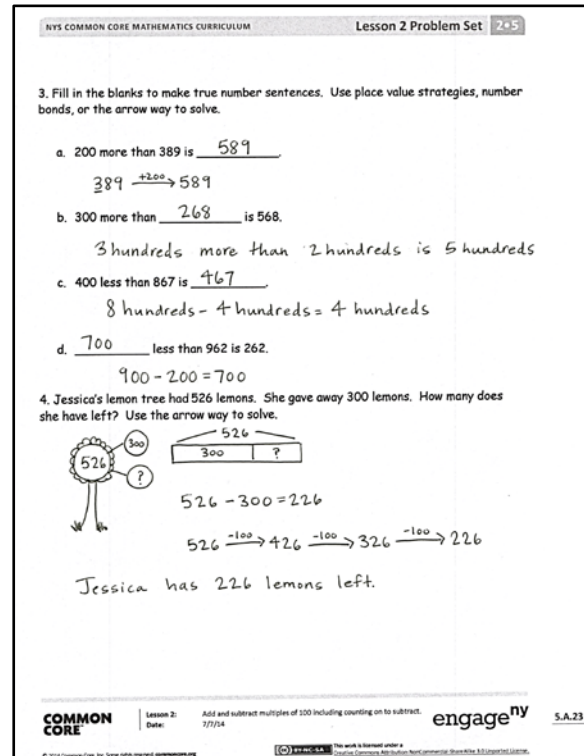 NYS COMMON CORE MATHEMATICS CURRICULUM
Lesson 2 Problem Set
2•5
3. Fill in the blanks to make true number sentences. Use place value strategies, number
bonds, or the arrow way to solve.
a. 200 more than 389 is 589.
389 +200→ 589
b. 300 more than 268 is 568.
3 hundreds more than 2 hundreds is 5 hundreds
c. 400 less than 867 is 467.
8 hundreds - 4 hundreds = 4 hundreds
d. 700 less than 962 is 262.
900 - 200 = 700
4. Jessica's lemon tree had 526 lemons. She gave away 300 lemons. How many does
she have left? Use the arrow way to solve.
526
300
?
526
300
?
526 - 300 = 226
526 -100→ 426 -100→ 326 -100→ 226
Jessica has 226 lemons left.
COMMON
CORE
Lesson 2:
Add and subtract multiples of 100 including counting on to subtract.
Date:
7/7/14
engage ny
5.A.23
© 2014 Common Core, Inc. Some rights reserved. commoncore.org
(cc) BY-NC-SA
This work is licensed under a
Creative Commons Attribution-NonCommercial-ShareAlike 3.0 Unported License.